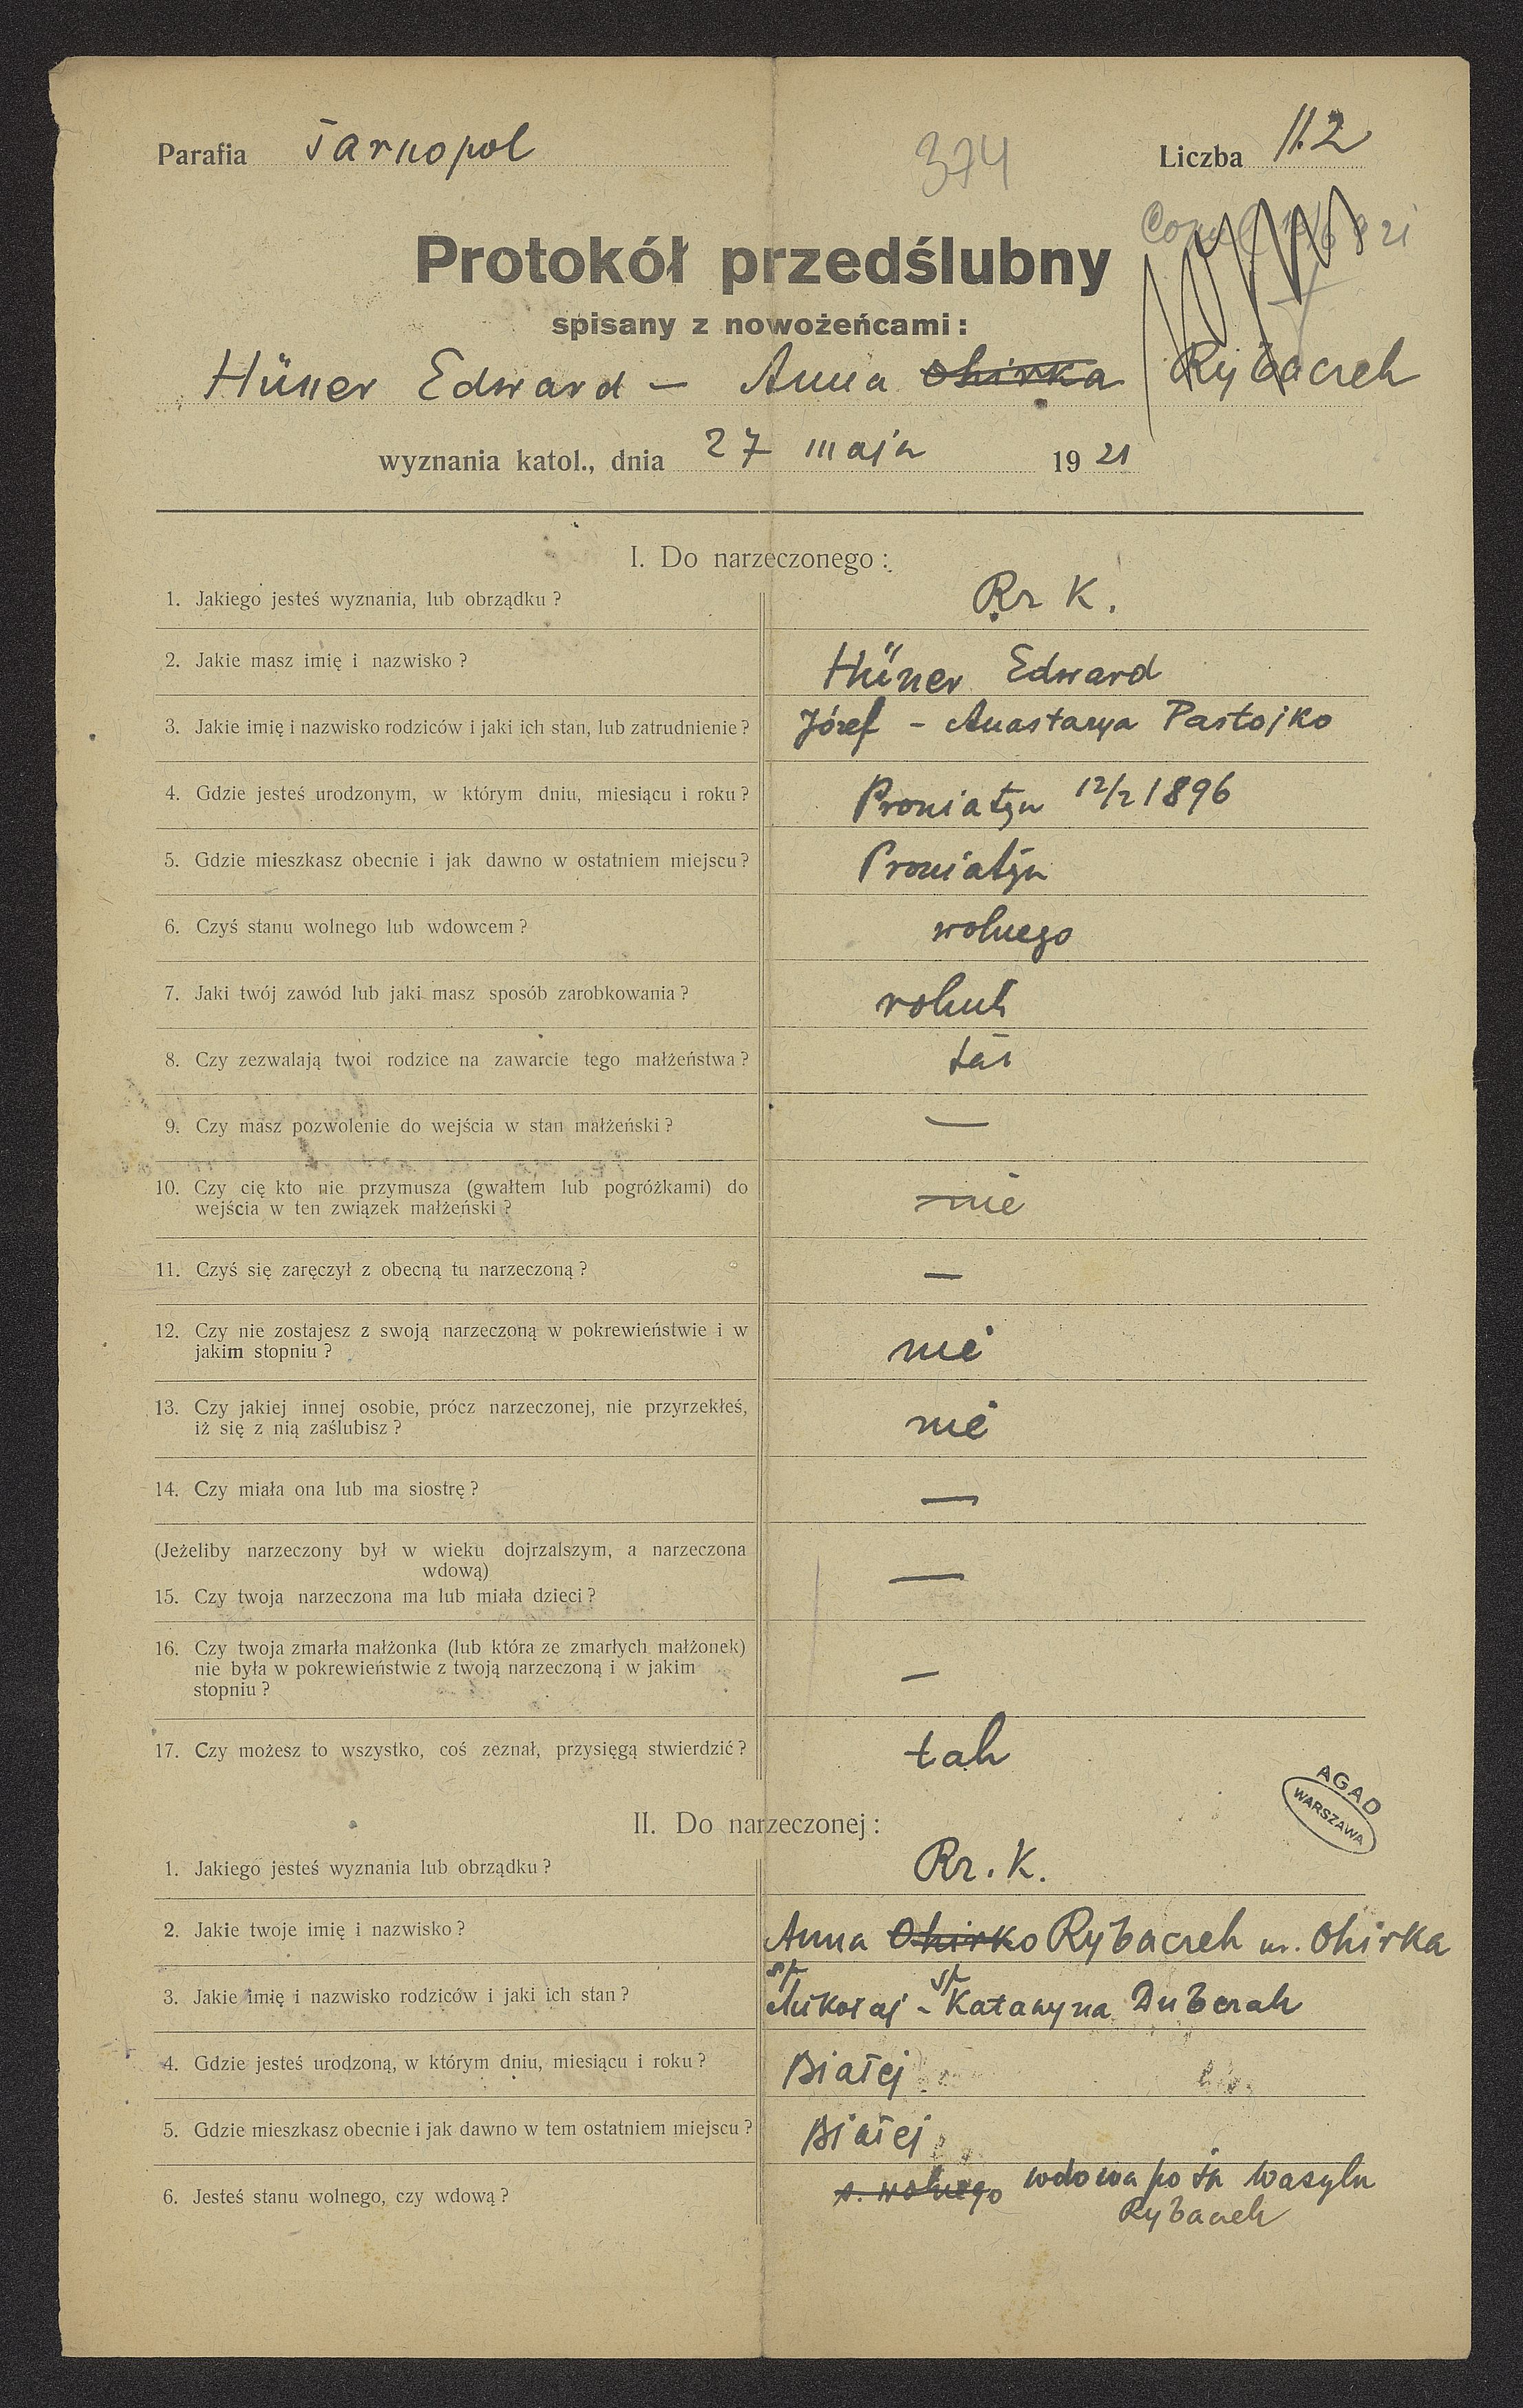 Parafia Tarnopol
374
Liczba 112
Protokół przedślubny
spisany z nowożeńcami:
Hüner Edward — Anna Ohirka Rybaczek
wyznania katol., dnia 27 maja 1921
I. Do narzeczonego:
1. Jakiego jesteś wyznania, lub obrządku? Rz K.
2. Jakie masz imię i nazwisko? Hüner Edward
3. Jakie imię i nazwisko rodziców i jaki ich stan, lub zatrudnienie? Józef - Anastazya Pastojko
4. Gdzie jesteś urodzonym, w którym dniu, miesiącu i roku? Proniatyn 12/2 1896
5. Gdzie mieszkasz obecnie i jak dawno w ostatniem miejscu? Proniatyn
6. Czyś stanu wolnego lub wdowcem? wolnego
7. Jaki twój zawód lub jaki masz sposób zarobkowania?
8. Czy zezwalają twoi rodzice na zawarcie tego małżeństwa?
9. Czy masz pozwolenie do wejścia w stan małżeński? —
10. Czy cię kto nie przymusza (gwałtem lub pogróżkami) do
wejścia w ten związek małżeński? nie
11. Czyś się zaręczył z obecną tu narzeczoną? —
12. Czy nie zostajesz z swoją narzeczoną w pokrewieństwie i w
jakim stopniu? nie
13. Czy jakiej innej osobie, prócz narzeczonej, nie przyrzekłeś,
iż się z nią zaślubisz? nie
14. Czy miała ona lub ma siostrę? —
(Jeżeliby narzeczony był w wieku dojrzalszym, a narzeczona
wdową)
15. Czy twoja narzeczona ma lub miała dzieci? —
16. Czy twoja zmarła małżonka (lub która ze zmarłych małżonek)
nie była w pokrewieństwie z twoją narzeczoną i w jakim
stopniu? —
17. Czy możesz to wszystko, coś zeznał, przysięgą stwierdzić? tak
AGAD
WARSZAWA
II. Do narzeczonej:
1. Jakiego jesteś wyznania lub obrządku? Rz. K.
2. Jakie twoje imię i nazwisko? Anna Ohirko Rybaczek ur. Ohirka
3. Jakie imię i nazwisko rodziców i jaki ich stan? śp Mikołaj - śp Katarzyna Dubczak
4. Gdzie jesteś urodzoną, w którym dniu, miesiącu i roku? Białej
5. Gdzie mieszkasz obecnie i jak dawno w tem ostatniem miejscu? Białej
6. Jesteś stanu wolnego, czy wdową? s. wolnego wdowa po śp Wasylu
Rybaczek